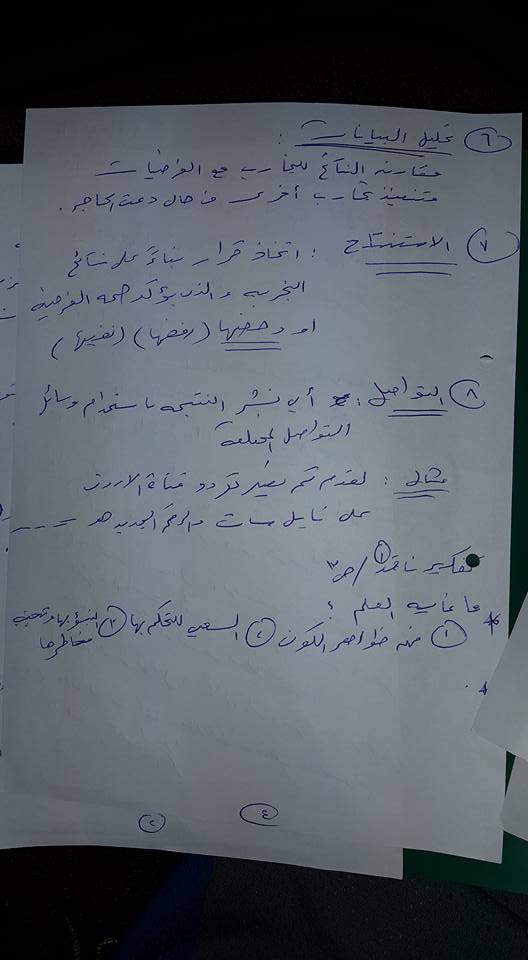 ٦ تحليل البيانات :
مقارنة النتائج للتجارب مع الفرضيات
وتنفيذ تجارب أخرى في حال دعت الحاجه .
٧ الاستنتاج : اتخاذ قرار بناءً على نتائج
التجربه والذي يؤكد صحه الفرضية
او دحضها (رفضها) (نفيها)
٨ التواصل : أي نشر النتيجه باستخدام وسائل
التواصل المختلفة
مثال : لقد تم تغير تردد قناة الاردن
على نايل سات والرقم الجديد هو ----
تفكير ناقد ١ / ص٣
* ما غايه العلم ؟
١ فهم ظواهر الكون ٢ السعي للتحكم بها ٣ التنبؤ بها وتجنب
مخاطرها
٤
٢